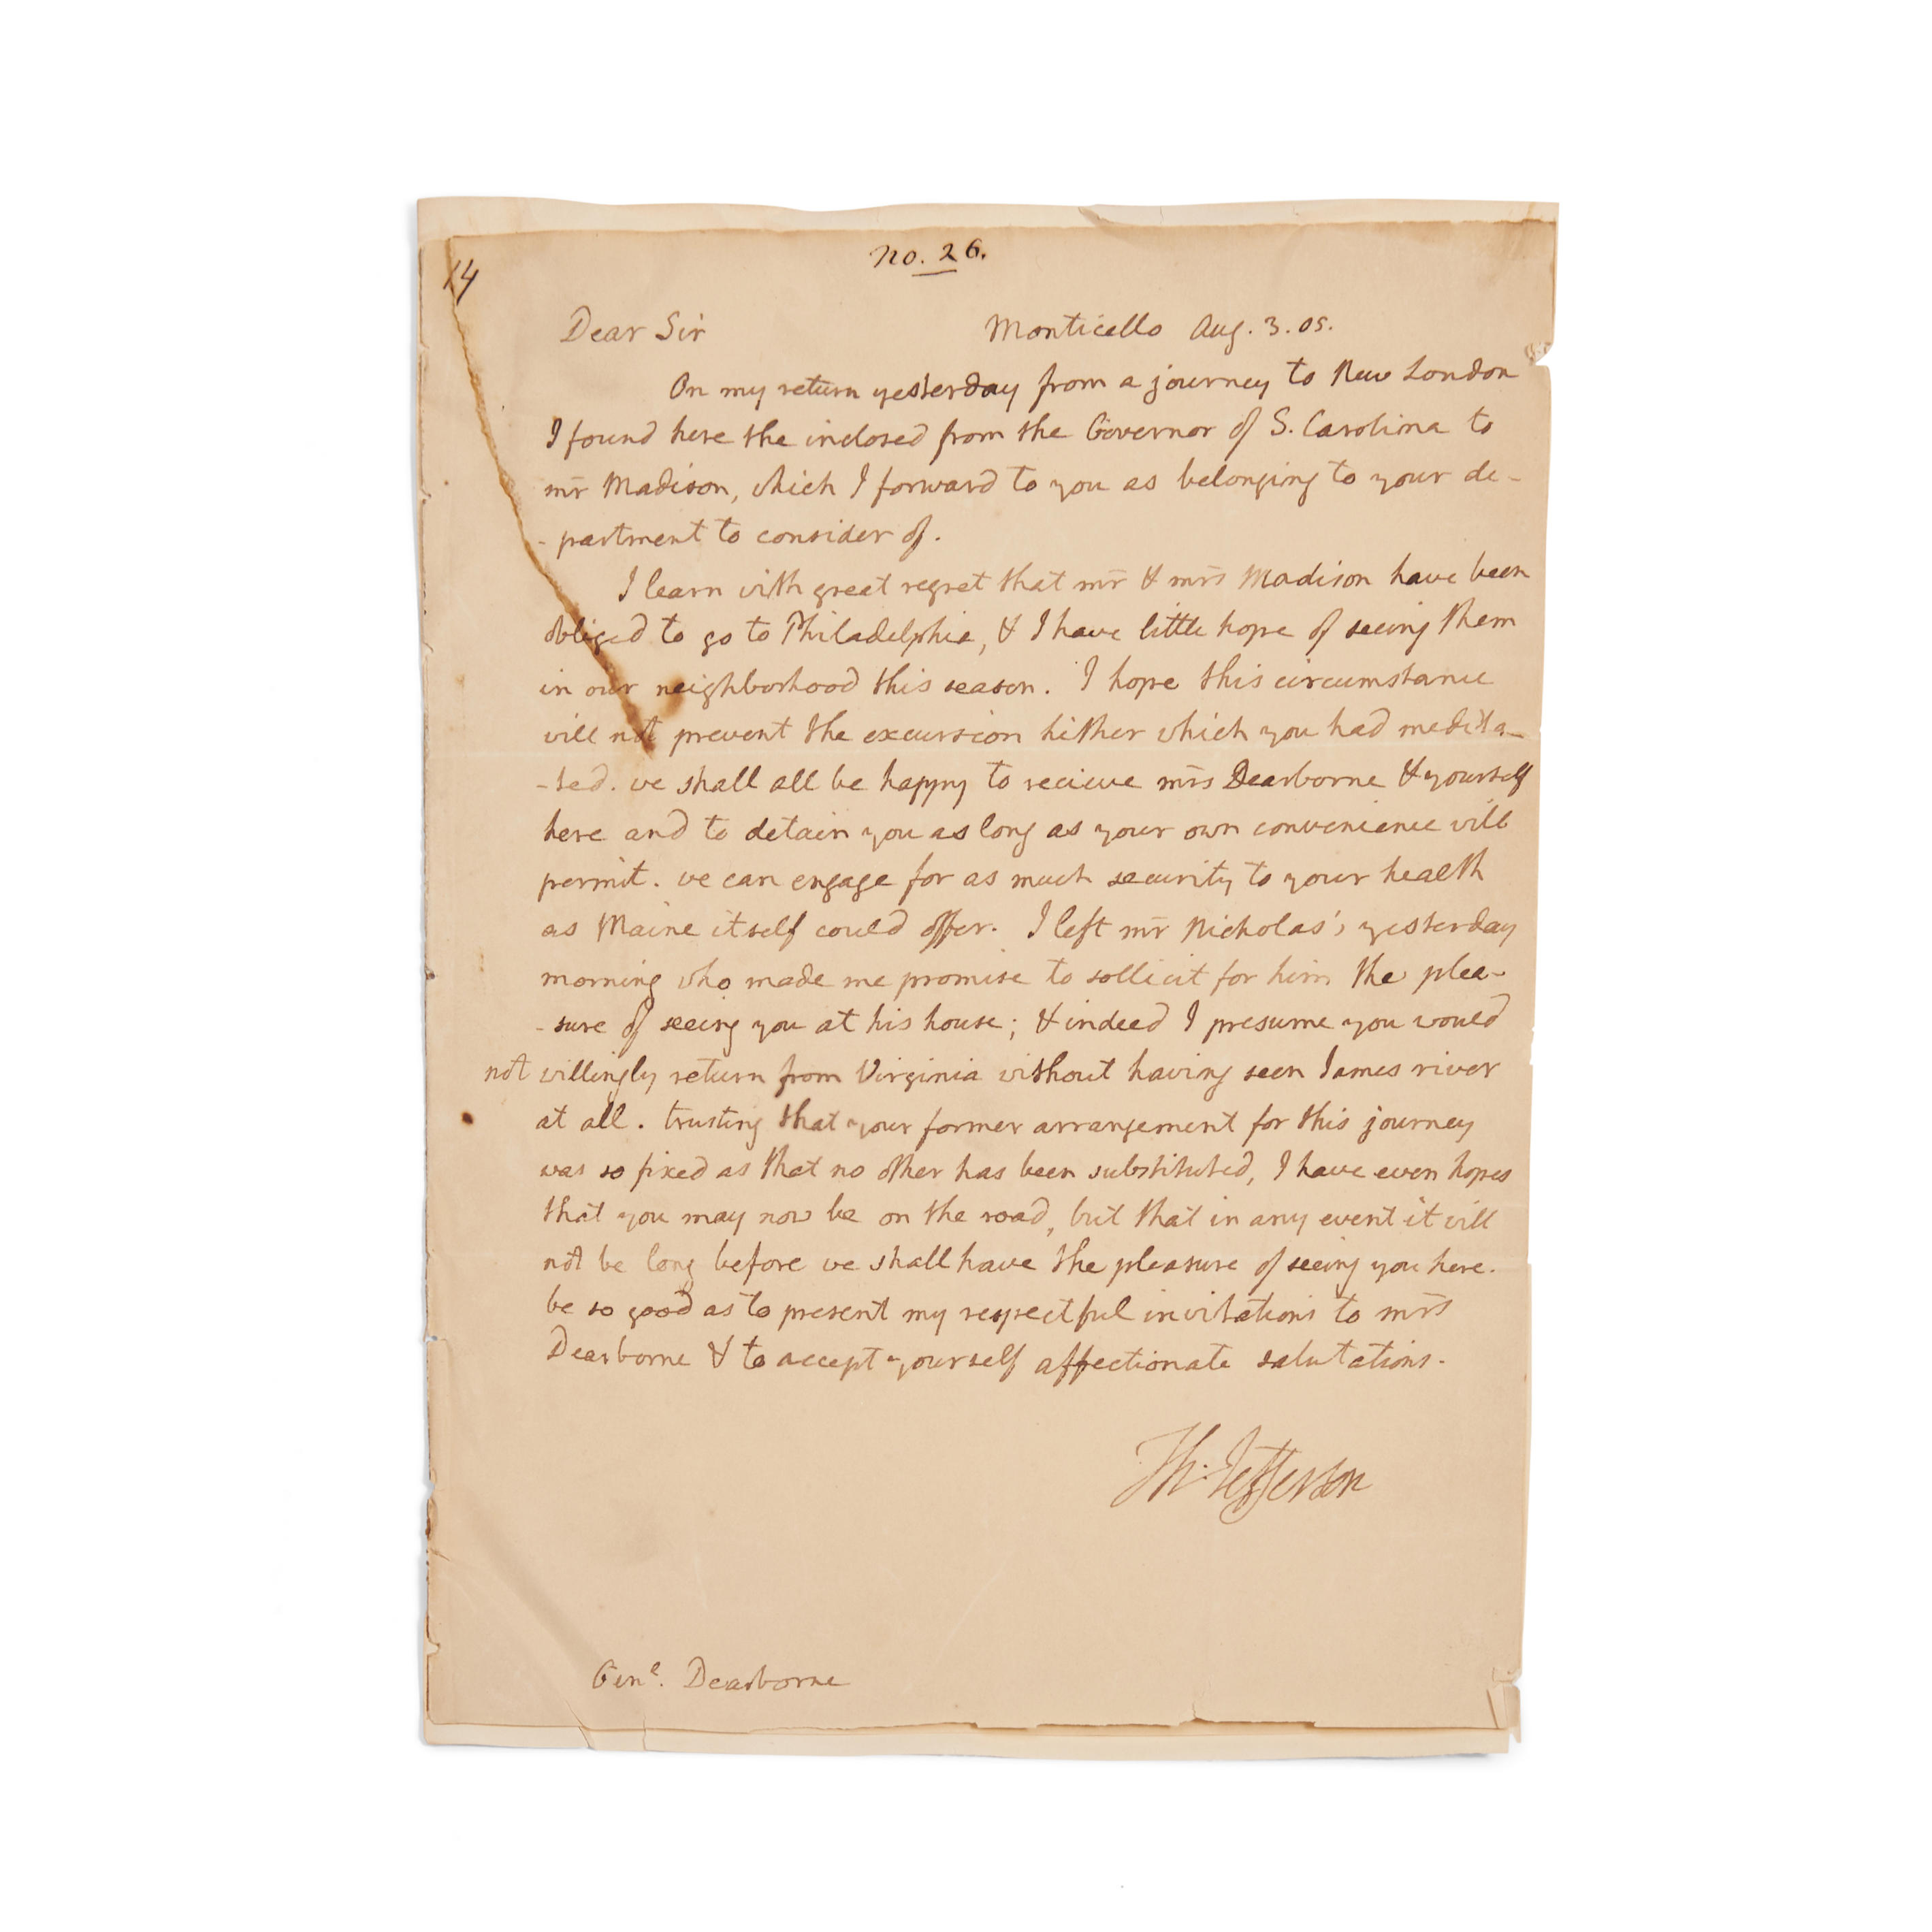 14
no. 26.
Dear Sir Monticello Aug. 3. 05.
On my return yesterday from a journey to New London
I found here the inclosed from the Governor of S. Carolina to
mr Madison, which I forward to you as belonging to your de-
- partment to consider of.
I learn with great regret that mr & mrs Madison have been
obliged to go to Philadelphia, & I have little hope of seeing them
in our neighborhood this season. I hope this circumstance
will not prevent the excursion hither which you had medita-
-ted. we shall all be happy to recieve mrs Dearborne & yourself
here and to detain you as long as your own convenience will
permit. we can engage for as much security to your health
as Maine itself could offer. I left mr Nicholas's yesterday
morning who made me promise to sollicit for him the plea-
- sure of seeing you at his house; & indeed I presume you would
not willingly return from Virginia without having seen James river
at all. trusting that your former arrangement for this journey
was so fixed as that no other has been substituted, I have even hopes
that you may now be on the road, but that in any event it will
not be long before we shall have the pleasure of seeing you here.
be so good as to present my respectful invitations to mrs
Dearborne & to accept yourself affectionate salutations.
Th: Jefferson
Genl. Dearborne